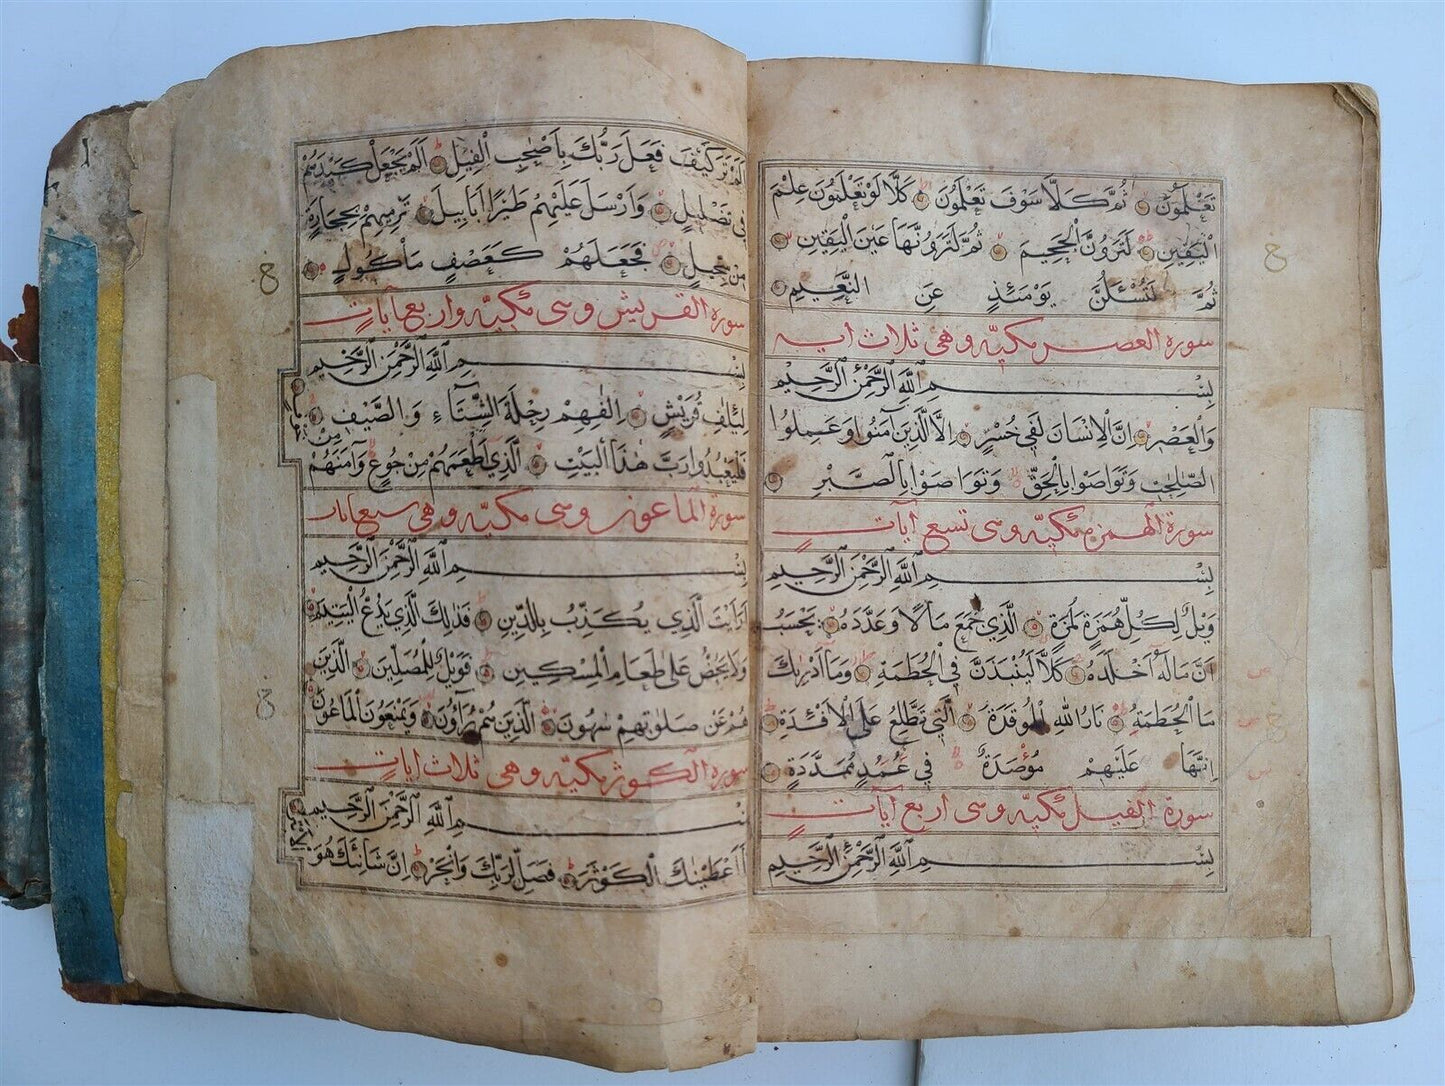 تَعْلَمُونَ ثُمَّ كَلَّا سَوْفَ تَعْلَمُونَ كَلَّا لَوْ تَعْلَمُونَ عِلْمَ
الْيَقِينِ لَتَرَوُنَّ الْجَحِيمَ ثُمَّ لَتَرَوُنَّهَا عَيْنَ الْيَقِينِ
ثُمَّ لَتُسْئَلُنَّ يَوْمَئِذٍ عَنِ النَّعِيمِ
سورة العصر مكيّة وهي ثلاث اية
بِسْمِ اللَّهِ الرَّحْمٰنِ الرَّحِيمِ
وَالْعَصْرِ اِنَّ الْاِنْسَانَ لَفِي خُسْرٍ اِلَّا الَّذِينَ آمَنُوا وَعَمِلُوا
الصّٰلِحٰتِ وَتَوَاصَوْا بِالْحَقِّ وَتَوَاصَوْا بِالصَّبْرِ
سورة الهمزه مكيّه وسى تسع آيات
بِسْمِ اللَّهِ الرَّحْمٰنِ الرَّحِيمِ
وَيْلٌ لِكُلِّ هُمَزَةٍ لُمَزَةٍ الَّذِي جَمَعَ مَالًا وَعَدَّدَهُ يَحْسَبُ
اَنَّ مَالَهُ اَخْلَدَهُ كَلَّا لَيُنْبَذَنَّ فِي الْحُطَمَةِ وَمَا اَدْرٰيكَ
مَا الْحُطَمَةُ نَارُ اللَّهِ الْمُوقَدَةُ الَّتِي تَطَّلِعُ عَلَى الْاَفْئِدَةِ
اِنَّهَا عَلَيْهِمْ مُؤْصَدَةٌ فِي عَمَدٍ مُمَدَّدَةٍ
سورة الفيل مكيّه وسى اربع آيات
بِسْمِ اللَّهِ الرَّحْمٰنِ الرَّحِيمِ
اَلَمْ تَرَ كَيْفَ فَعَلَ رَبُّكَ بِاَصْحٰبِ الْفِيلِ اَلَمْ يَجْعَلْ كَيْدَهُمْ
فِي تَضْلِيلٍ وَاَرْسَلَ عَلَيْهِمْ طَيْرًا اَبَابِيلَ تَرْمِيهِمْ بِحِجَارَةٍ
مِنْ سِجِّيلٍ فَجَعَلَهُمْ كَعَصْفٍ مَأْكُولٍ
سورة القريش وسى مكيّه واربع آيات
بِسْمِ اللَّهِ الرَّحْمٰنِ الرَّحِيمِ
لِئِلٰفِ قُرَيْشٍ اِلٰفِهِمْ رِحْلَةَ الشِّتَآءِ وَالصَّيْفِ
فَلْيَعْبُدُوا رَبَّ هٰذَا الْبَيْتِ الَّذِي اَطْعَمَهُمْ مِنْ جُوعٍ وَآمَنَهُمْ
مِنْ خَوْفٍ
سورة الماعون وسى مكيّه وهي سبع آيات
بِسْمِ اللَّهِ الرَّحْمٰنِ الرَّحِيمِ
اَرَاَيْتَ الَّذِي يُكَذِّبُ بِالدِّينِ فَذٰلِكَ الَّذِي يَدُعُّ الْيَتِيمَ
وَلَا يَحُضُّ عَلٰى طَعَامِ الْمِسْكِينِ فَوَيْلٌ لِلْمُصَلِّينَ الَّذِينَ
هُمْ عَنْ صَلٰوتِهِمْ سَاهُونَ الَّذِينَ هُمْ يُرَآؤُنَ وَيَمْنَعُونَ الْمَاعُونَ
سورة الكوثر مكيّه وهي ثلاث ايات
بِسْمِ اللَّهِ الرَّحْمٰنِ الرَّحِيمِ
اِنَّا اَعْطَيْنٰكَ الْكَوْثَرَ فَصَلِّ لِرَبِّكَ وَانْحَرْ اِنَّ شَانِئَكَ هُوَ
الْاَبْتَرُ